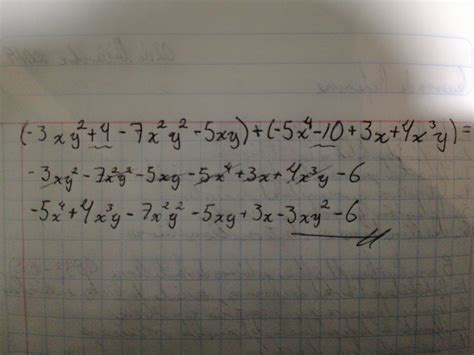 (-3xy²+4-7x²y²-5xy)+(-5x⁴-10+3x+4x³y)=
-3xy²-7x²y²-5xy-5x⁴+3x+4x³y-6
-5x⁴+4x³y-7x²y²-5xy+3x-3xy²-6